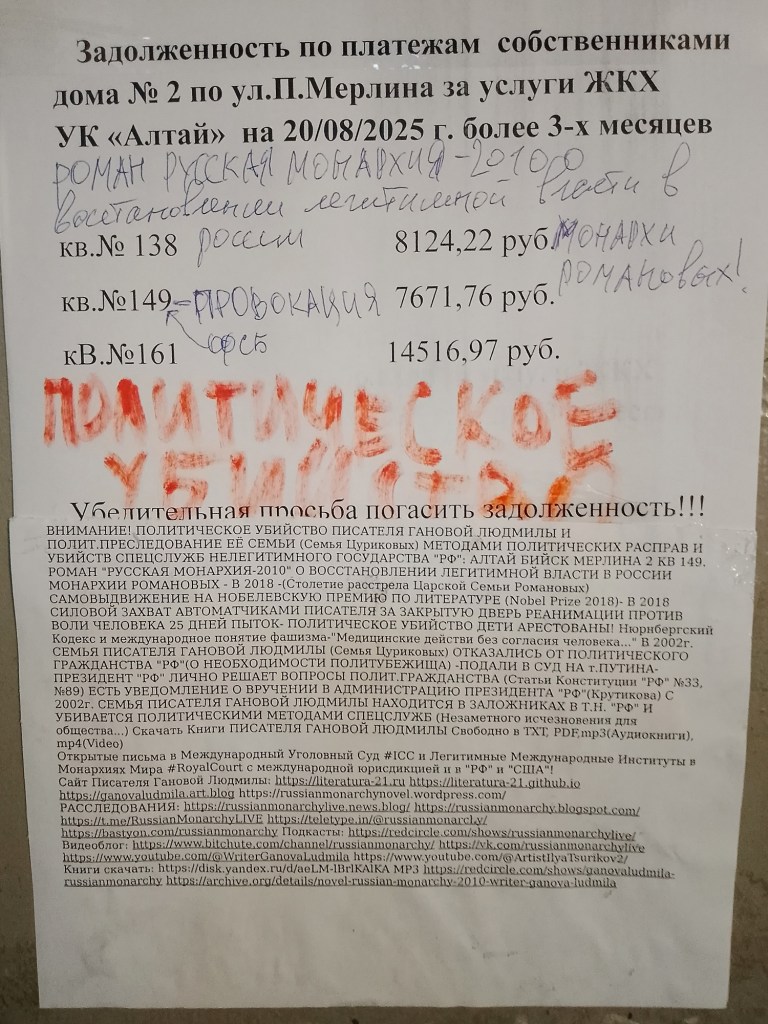 Задолженность по платежам собственниками
дома № 2 по ул.П.Мерлина за услуги ЖКХ
УК «Алтай» на 20/08/2025 г. более 3-х месяцев
РОМАН РУССКАЯ МОНАРХИЯ-2010 О
восстановлении легитимной власти в
кв.№ 138 россии 8124,22 руб. МОНАРХИ
РОМАНОВЫХ!
кв.№149 -ПРОВОКАЦИЯ 7671,76 руб.
ФСБ
кВ.№161 14516,97 руб.
ПОЛИТИЧЕСКОЕ
УБИЙСТВО
Убедительная просьба погасить задолженность!!!
ВНИМАНИЕ! ПОЛИТИЧЕСКОЕ УБИЙСТВО ПИСАТЕЛЯ ГАНОВОЙ ЛЮДМИЛЫ И
ПОЛИТ.ПРЕСЛЕДОВАНИЕ ЕЁ СЕМЬИ (Семья Цуриковых) МЕТОДАМИ ПОЛИТИЧЕСКИХ РАСПРАВ И
УБИЙСТВ СПЕЦСЛУЖБ НЕЛЕГИТИМНОГО ГОСУДАРСТВА "РФ": АЛТАЙ БИЙСК МЕРЛИНА 2 КВ 149.
РОМАН "РУССКАЯ МОНАРХИЯ-2010" О ВОССТАНОВЛЕНИИ ЛЕГИТИМНОЙ ВЛАСТИ В РОССИИ
МОНАРХИИ РОМАНОВЫХ - В 2018 -(Столетие расстрела Царской Семьи Романовых)
САМОВЫДВИЖЕНИЕ НА НОБЕЛЕВСКУЮ ПРЕМИЮ ПО ЛИТЕРАТУРЕ (Nobel Prize 2018)- В 2018
СИЛОВОЙ ЗАХВАТ АВТОМАТЧИКАМИ ПИСАТЕЛЯ ЗА ЗАКРЫТУЮ ДВЕРЬ РЕАНИМАЦИИ ПРОТИВ
ВОЛИ ЧЕЛОВЕКА 25 ДНЕЙ ПЫТОК- ПОЛИТИЧЕСКОЕ УБИЙСТВО ДЕТИ АРЕСТОВАНЫ! Нюрнбергский
Кодекс и международное понятие фашизма-"Медицинские действи без согласия человека..." В 2002г.
СЕМЬЯ ПИСАТЕЛЯ ГАНОВОЙ ЛЮДМИЛЫ (Семья Цуриковых) ОТКАЗАЛИСЬ ОТ ПОЛИТИЧЕСКОГО
ГРАЖДАНСТВА "РФ"(О НЕОБХОДИМОСТИ ПОЛИТУБЕЖИЩА) -ПОДАЛИ В СУД НА т.ПУТИНА-
ПРЕЗИДЕНТ "РФ" ЛИЧНО РЕШАЕТ ВОПРОСЫ ПОЛИТ.ГРАЖДАНСТВА (Статьи Конституции "РФ" №33,
№89) ЕСТЬ УВЕДОМЛЕНИЕ О ВРУЧЕНИИ В АДМИНИСТРАЦИЮ ПРЕЗИДЕНТА "РФ"(Крутикова) С
2002г. СЕМЬЯ ПИСАТЕЛЯ ГАНОВОЙ ЛЮДМИЛЫ НАХОДИТСЯ В ЗАЛОЖНИКАХ В Т.Н. "РФ" И
УБИВАЕТСЯ ПОЛИТИЧЕСКИМИ МЕТОДАМИ СПЕЦСЛУЖБ (Незаметного исчезновения для
общества...) Скачать Книги ПИСАТЕЛЯ ГАНОВОЙ ЛЮДМИЛЫ Свободно в TXT, PDF,mp3(Аудиокниги),
mp4(Video)
Открытые письма в Международный Уголовный Суд #ICC и Легитимные Международные Институты в
Монархиях Мира #RoyalCourt с международной юрисдикцией и в "РФ" и "США"!
Сайт Писателя Гановой Людмилы: https://literatura-21.ru https://literatura-21.github.io
https://ganovaludmila.art.blog https://russianmonarchynovel.wordpress.com/
РАССЛЕДОВАНИЯ: https://russianmonarchylive.news.blog/ https://russianmonarchy.blogspot.com/
https://t.me/RussianMonarchyLIVE https://teletype.in/@russianmonarcl.y/
https://bastyon.com/russianmonarchy Подкасты: https://redcircle.com/shows/russianmonarchylive/
Видеоблог: https://www.bitchute.com/channel/russianmonarchy/ https://vk.com/russianmonarchylive
https://www.youtube.com/@WriterGanovaLudmila https://www.youtube.com/@ArtistIlyaTsurikov2/
Книги скачать: https://disk.yandex.ru/d/aeLM-lBrlKAlKA MP3 https://redcircle.com/shows/ganovaludmila-
russianmonarchy https://archive.org/details/novel-russian-monarchy-2010-writer-ganova-ludmila